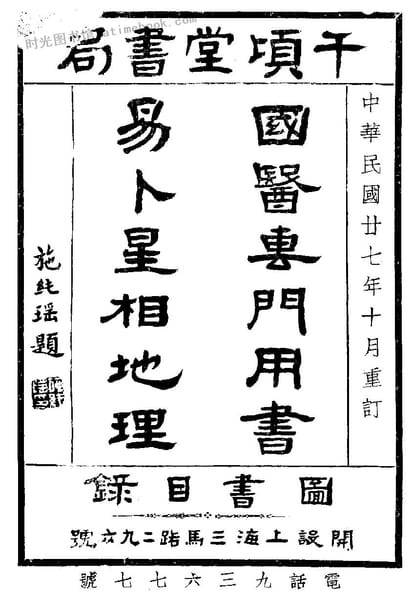 千頃堂書局
中華民國廿七年十月重訂
國醫專門用書
易卜星相地理
施純瑶題
圖書目錄
開設上海三馬路二九六號
電話九三六七七號